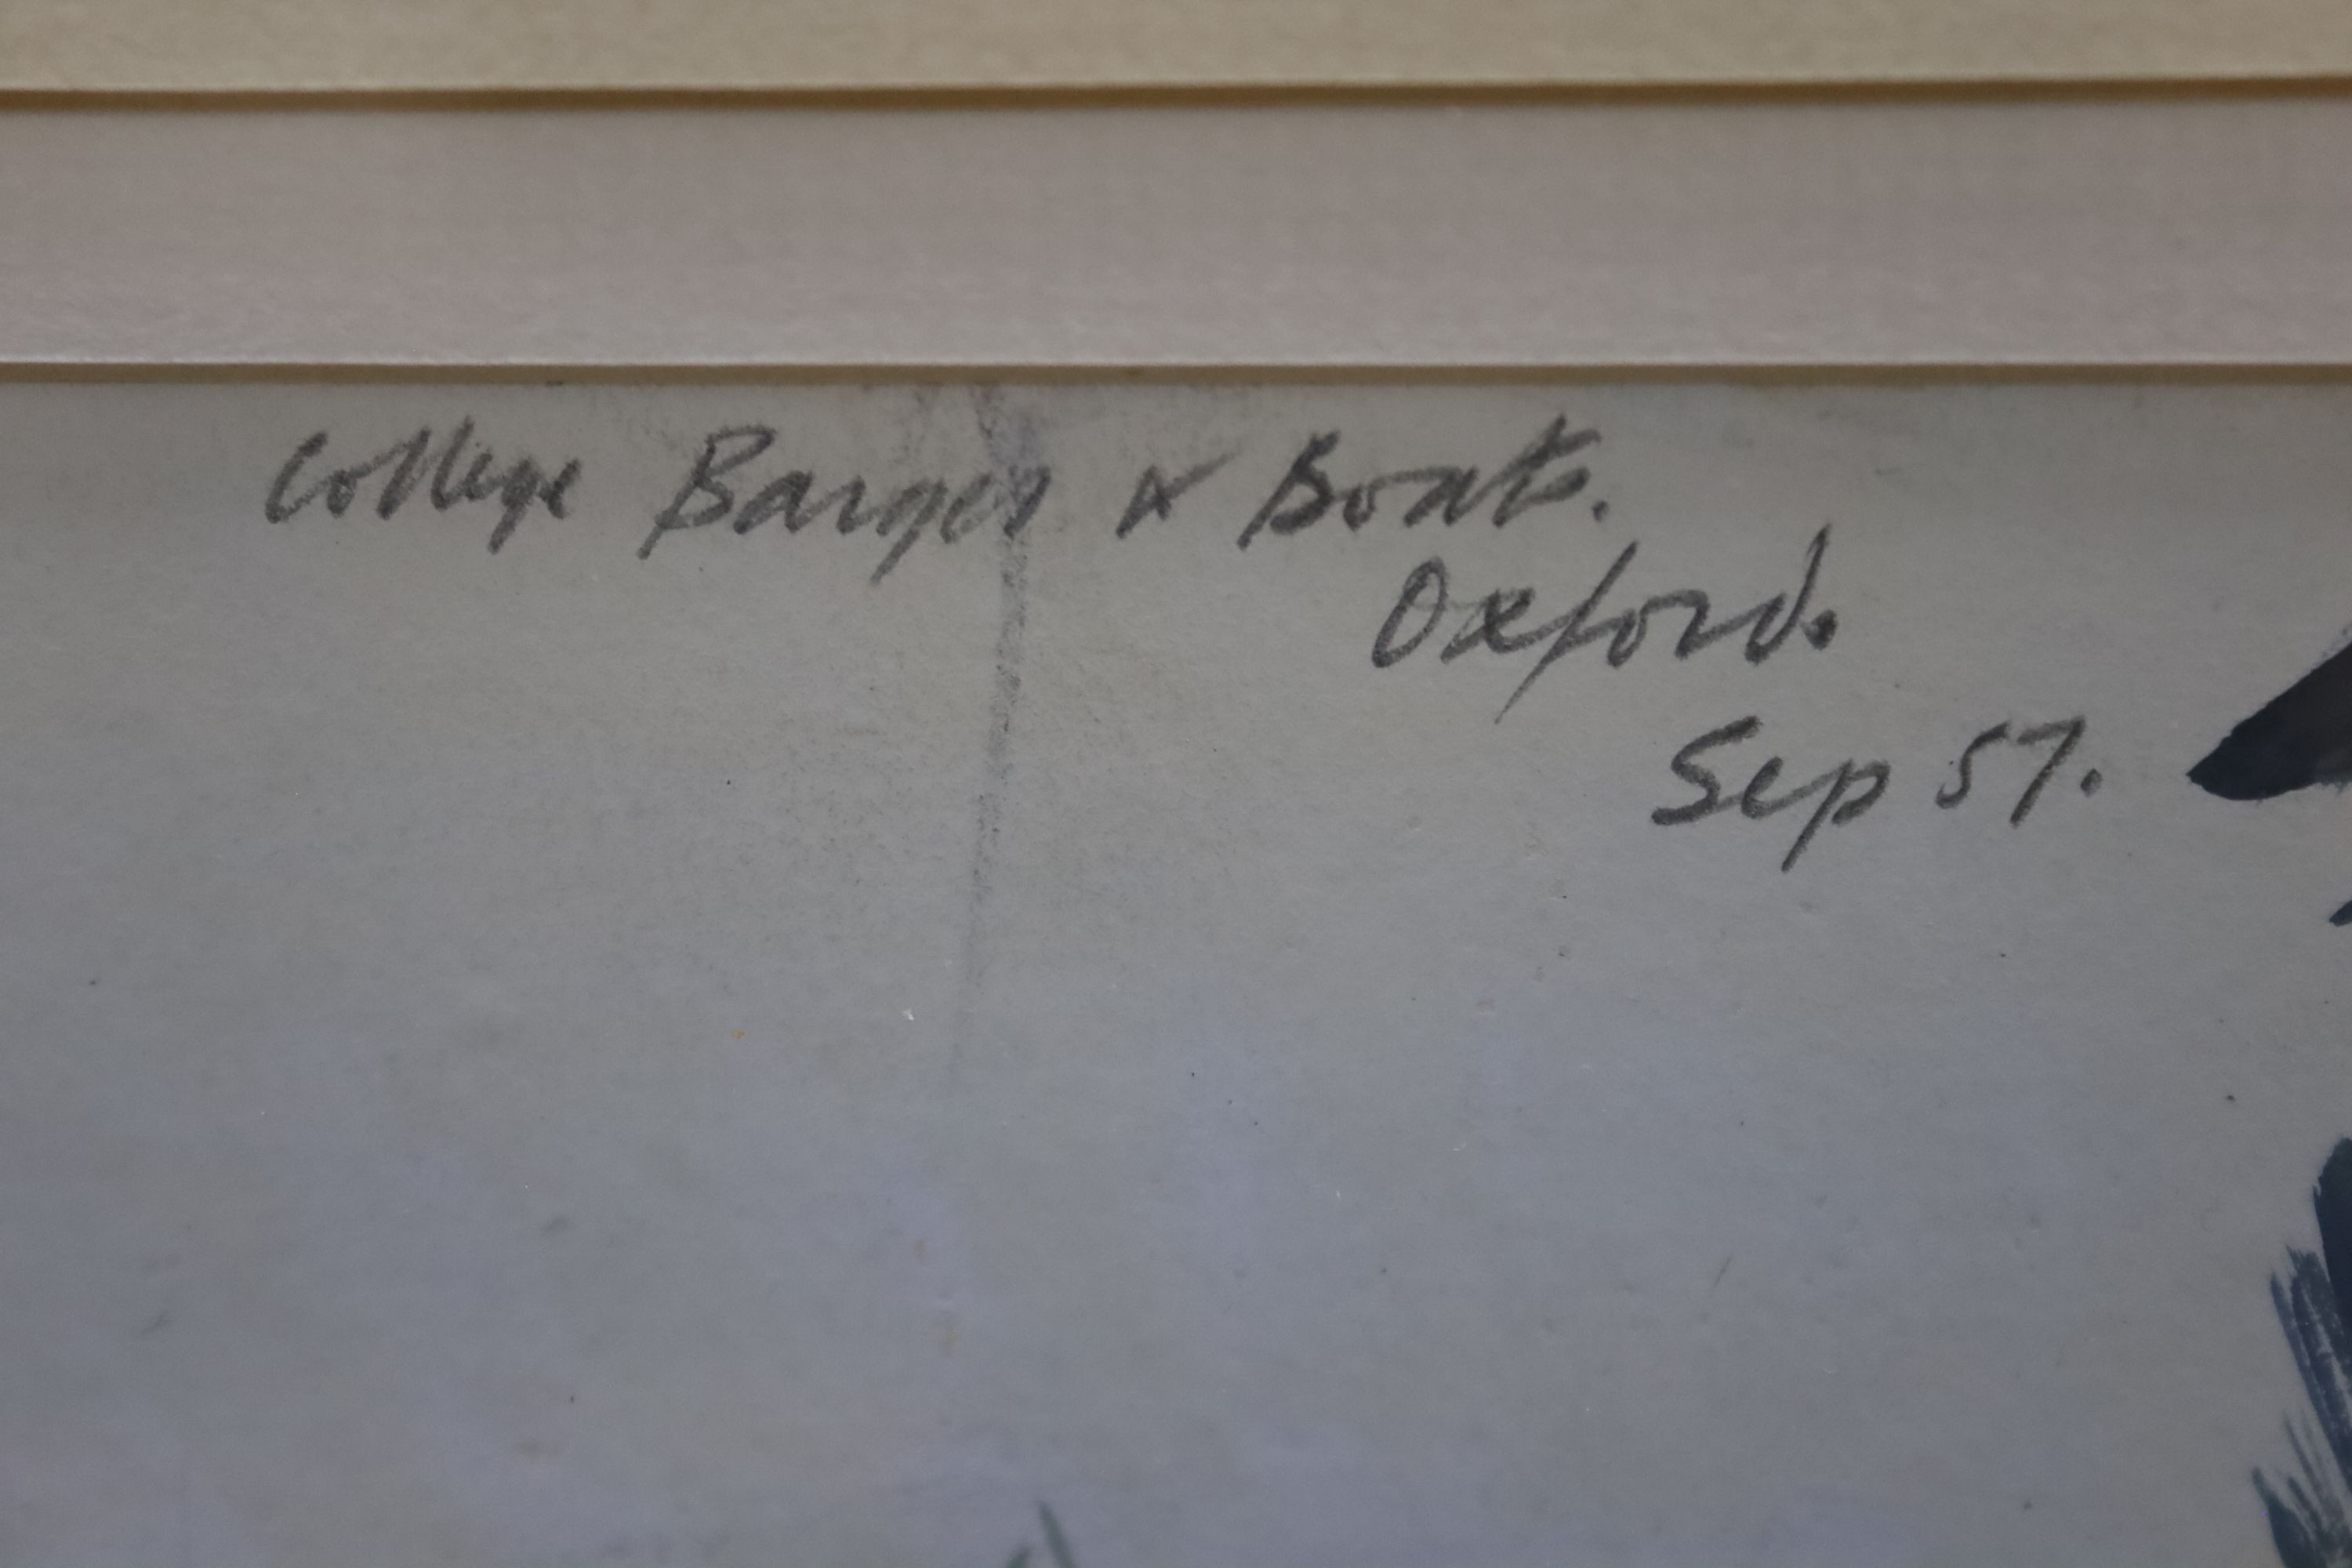 College Barges & Boats.
Oxford.
Sep 57.